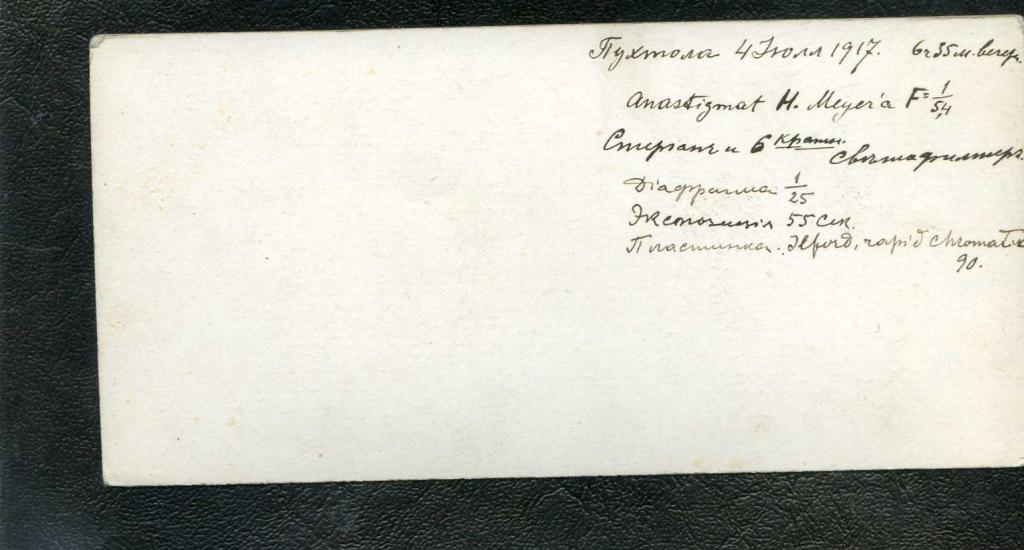 Пухтола 4 Іюля 1917. 6ч 35м. вечер.
Anastigmat H. Meyer'a F=1/5,4
и 6 кратн. свѣтофильтръ
Діафрагма 1/25
Экспозиція 55 сек.
Пластинка. Ilford, rapid chromatic
90.